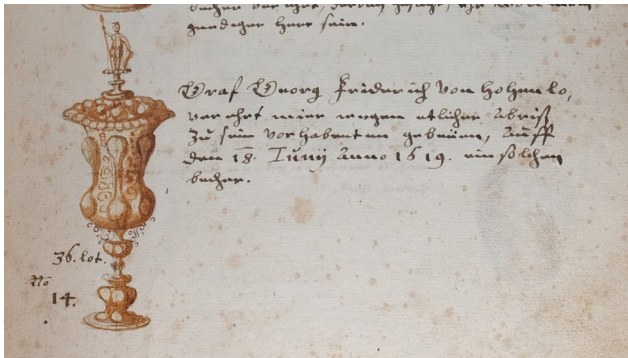 gnediger herr sein.
Graf Georg Friderich von hohenlo,
verehrt mier wegen etlicher Abriß
zu sein vorhabenten gebeüen, Auff
den 18. Iunij Anno 1619. ein solchen
becher.
36. lot.
No
14.